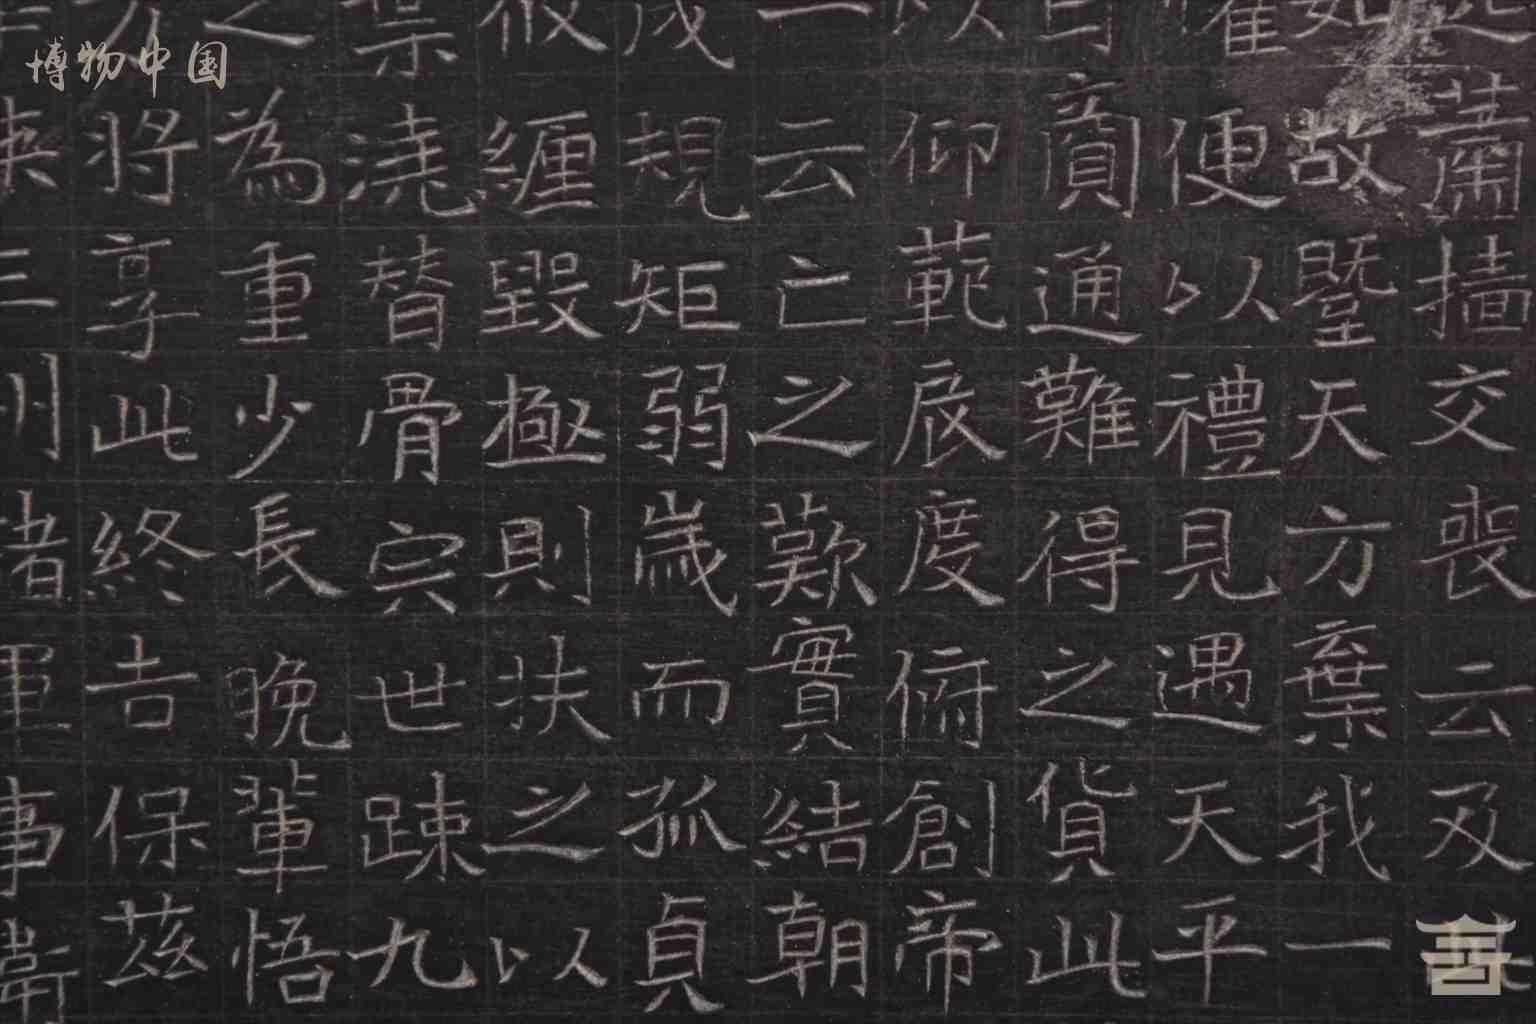 博物中国
蕭墻交喪云及
如故暨天方棄我一
便以禮見遇天平
賣通難得之貨此
以仰範辰度俯創帝
一云亡之歎實結朝
成規矩弱歲而孤貞
纏毀極則扶之以
葉澆替骨宍世踈九
之為重少長晚輩悟
將享此終告保茲
三州諸軍事衛